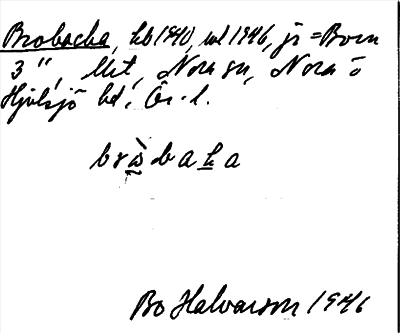 Brobacka, hb 1940, ul 1946, js = Born
3", Met, Nora sn, Nora o
Hjulsjö bd, Ör. l.
bràbaka
Bo Halvarson 1946